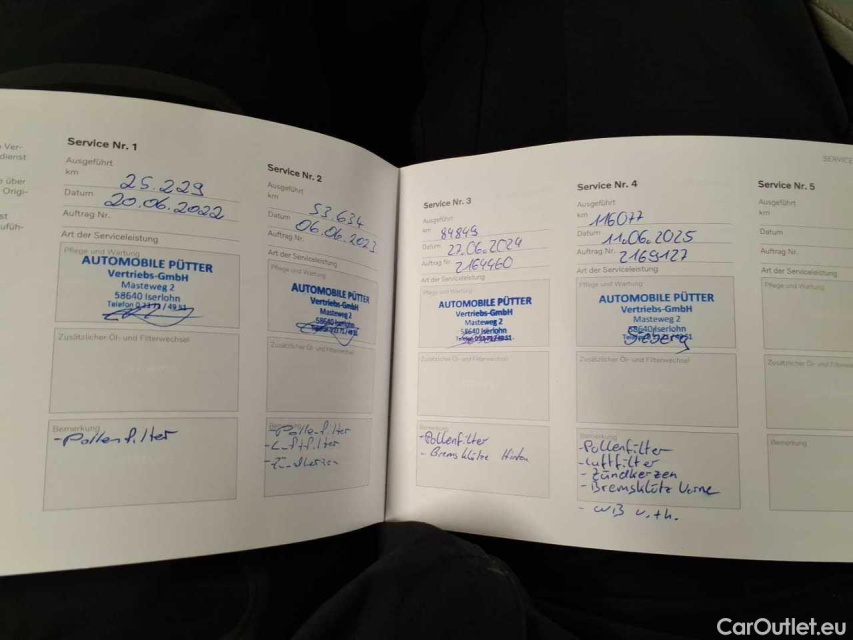 Ver-
dienst
über
Origi-
st
Service Nr. 1
Ausgeführt
km 25.229
Datum 20.06.2022
Auftrag Nr.
Art der Serviceleistung
Pflege und Wartung
AUTOMOBILE PÜTTER
Vertriebs-GmbH
Masteweg 2
58640 Iserlohn
Telefon
Zusätzlicher Öl- und Filterwechsel
Bemerkung
-Pollenfilter
Service Nr. 2
Ausgeführt
km 53.634
Datum 06.06.2023
Auftrag Nr.
Art der Serviceleistung
Pflege und Wartung
AUTOMOBILE PÜTTER
Vertriebs-GmbH
Masteweg 2
58640 Iserlohn
Zusätzlicher Öl- und Filterwechsel
-Pollenfilter
-Luftfilter
-Zündkerzen
Service Nr. 3
Ausgeführt
km 84849
Datum 27.06.2024
Auftrag Nr. 2164460
Art der Serviceleistung
Pflege und Wartung
AUTOMOBILE PÜTTER
Vertriebs-GmbH
Masteweg 2
58640 Iserlohn
Zusätzlicher Öl- und Filterwechsel
Bemerkung
-Pollenfilter
- Bremsklötze Hinten
SERVICE
Service Nr. 4
Ausgeführt
km 116077
Datum 11.06.2025
Auftrag Nr. 2169127
Art der Serviceleistung
Pflege und Wartung
AUTOMOBILE PÜTTER
Vertriebs-GmbH
Masteweg 2
58640 Iserlohn
Zusätzlicher Öl- und Filterwechsel
Bemerkung
-Pollenfilter
-Luftfilter
- Zündkerzen
-Bremsklötz Vorne
- WIB v. + h.
Service Nr. 5
Ausgeführt
km
Datum
Auftrag Nr.
Art der Serviceleistung
Pflege und Wartung
Zusätzlicher Öl- und Filterwechsel
Bemerkung
CarOutlet.eu